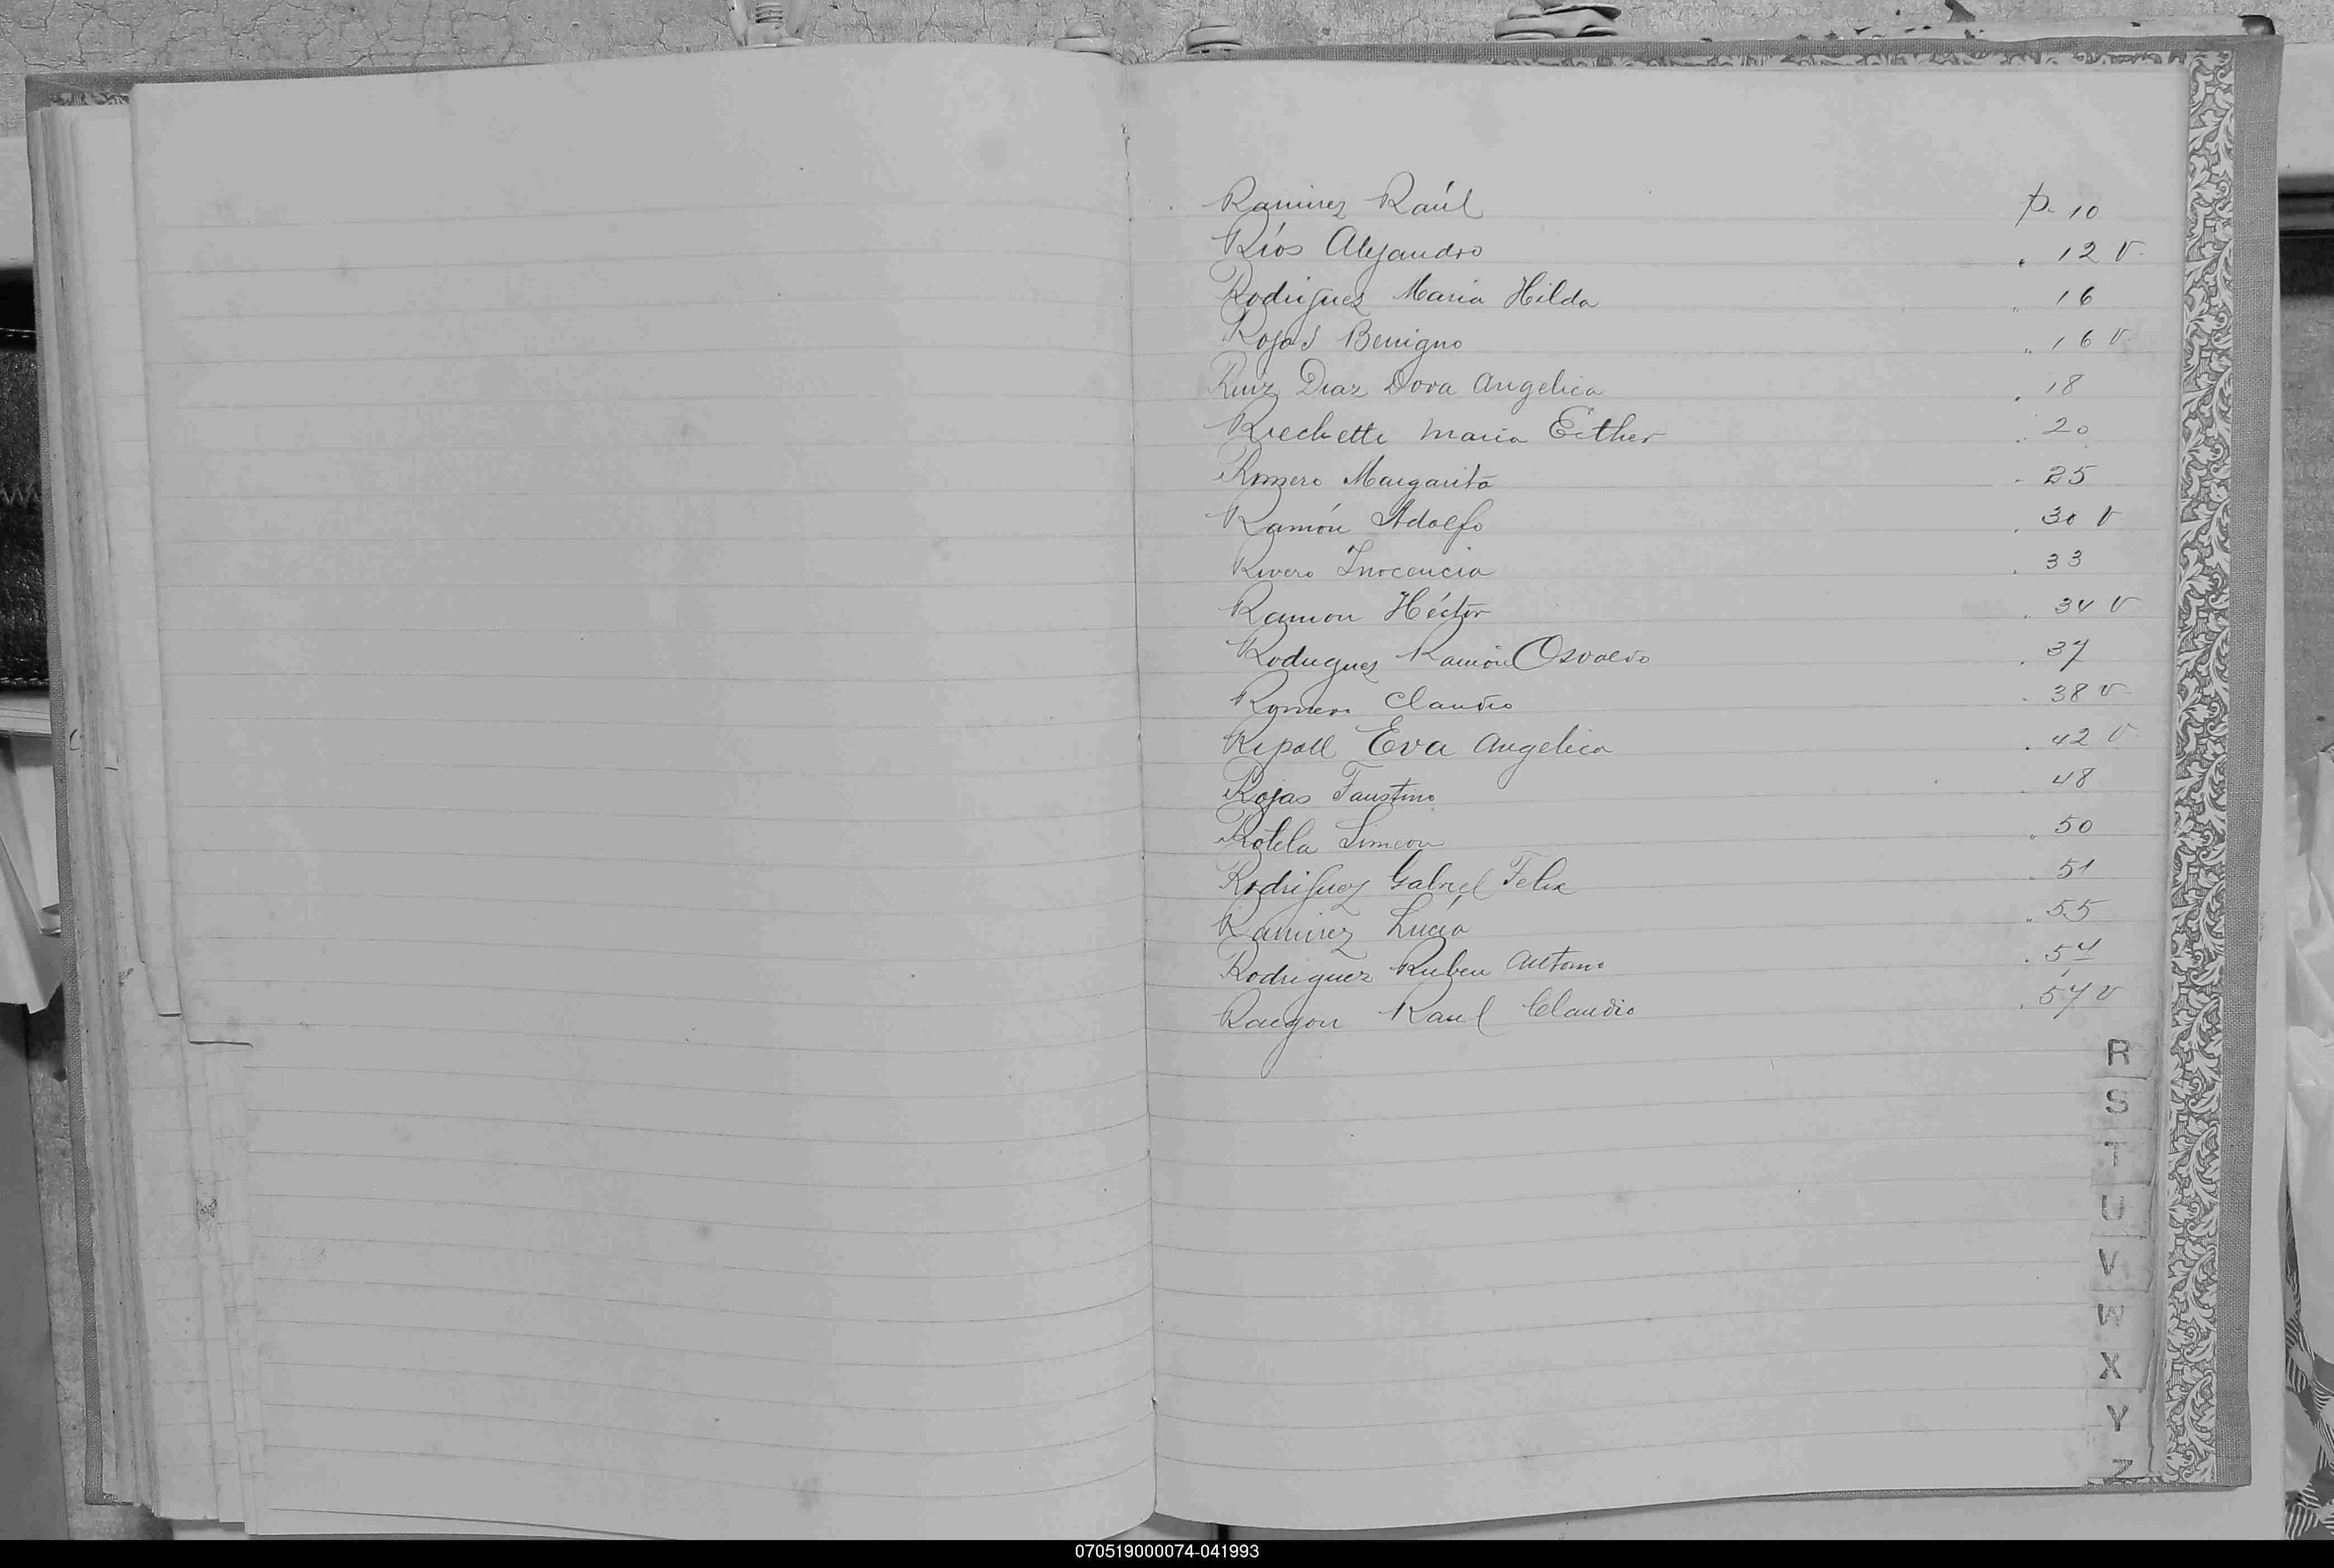 Ramirez Raúl p. 10
Ríos Alejandro " 12 v
Rodriguez Maria Hilda " 16
Rojas Benigno " 16 v
Ruiz Diaz Dora Angelica " 18
Maria Esther " 20
Romero Margarita " 25
Ramón Adolfo " 30 v
Rivero Inocencia " 33
Ramon Héctor " 34 v
Rodriguez Ramón Osvaldo " 37
Romero Claudio " 38 v
Ripoll Eva Angelica " 42 v
Rojas Faustino " 48
Rotela Simeon " 50
Rodriguez Gabriel Felix " 51
Ramirez Lucía " 55
Rodriguez Ruben Antonio " 54
Raul Claudio " 57 v
R
S
T
U
V
W
X
Y
Z
070519000074-041993